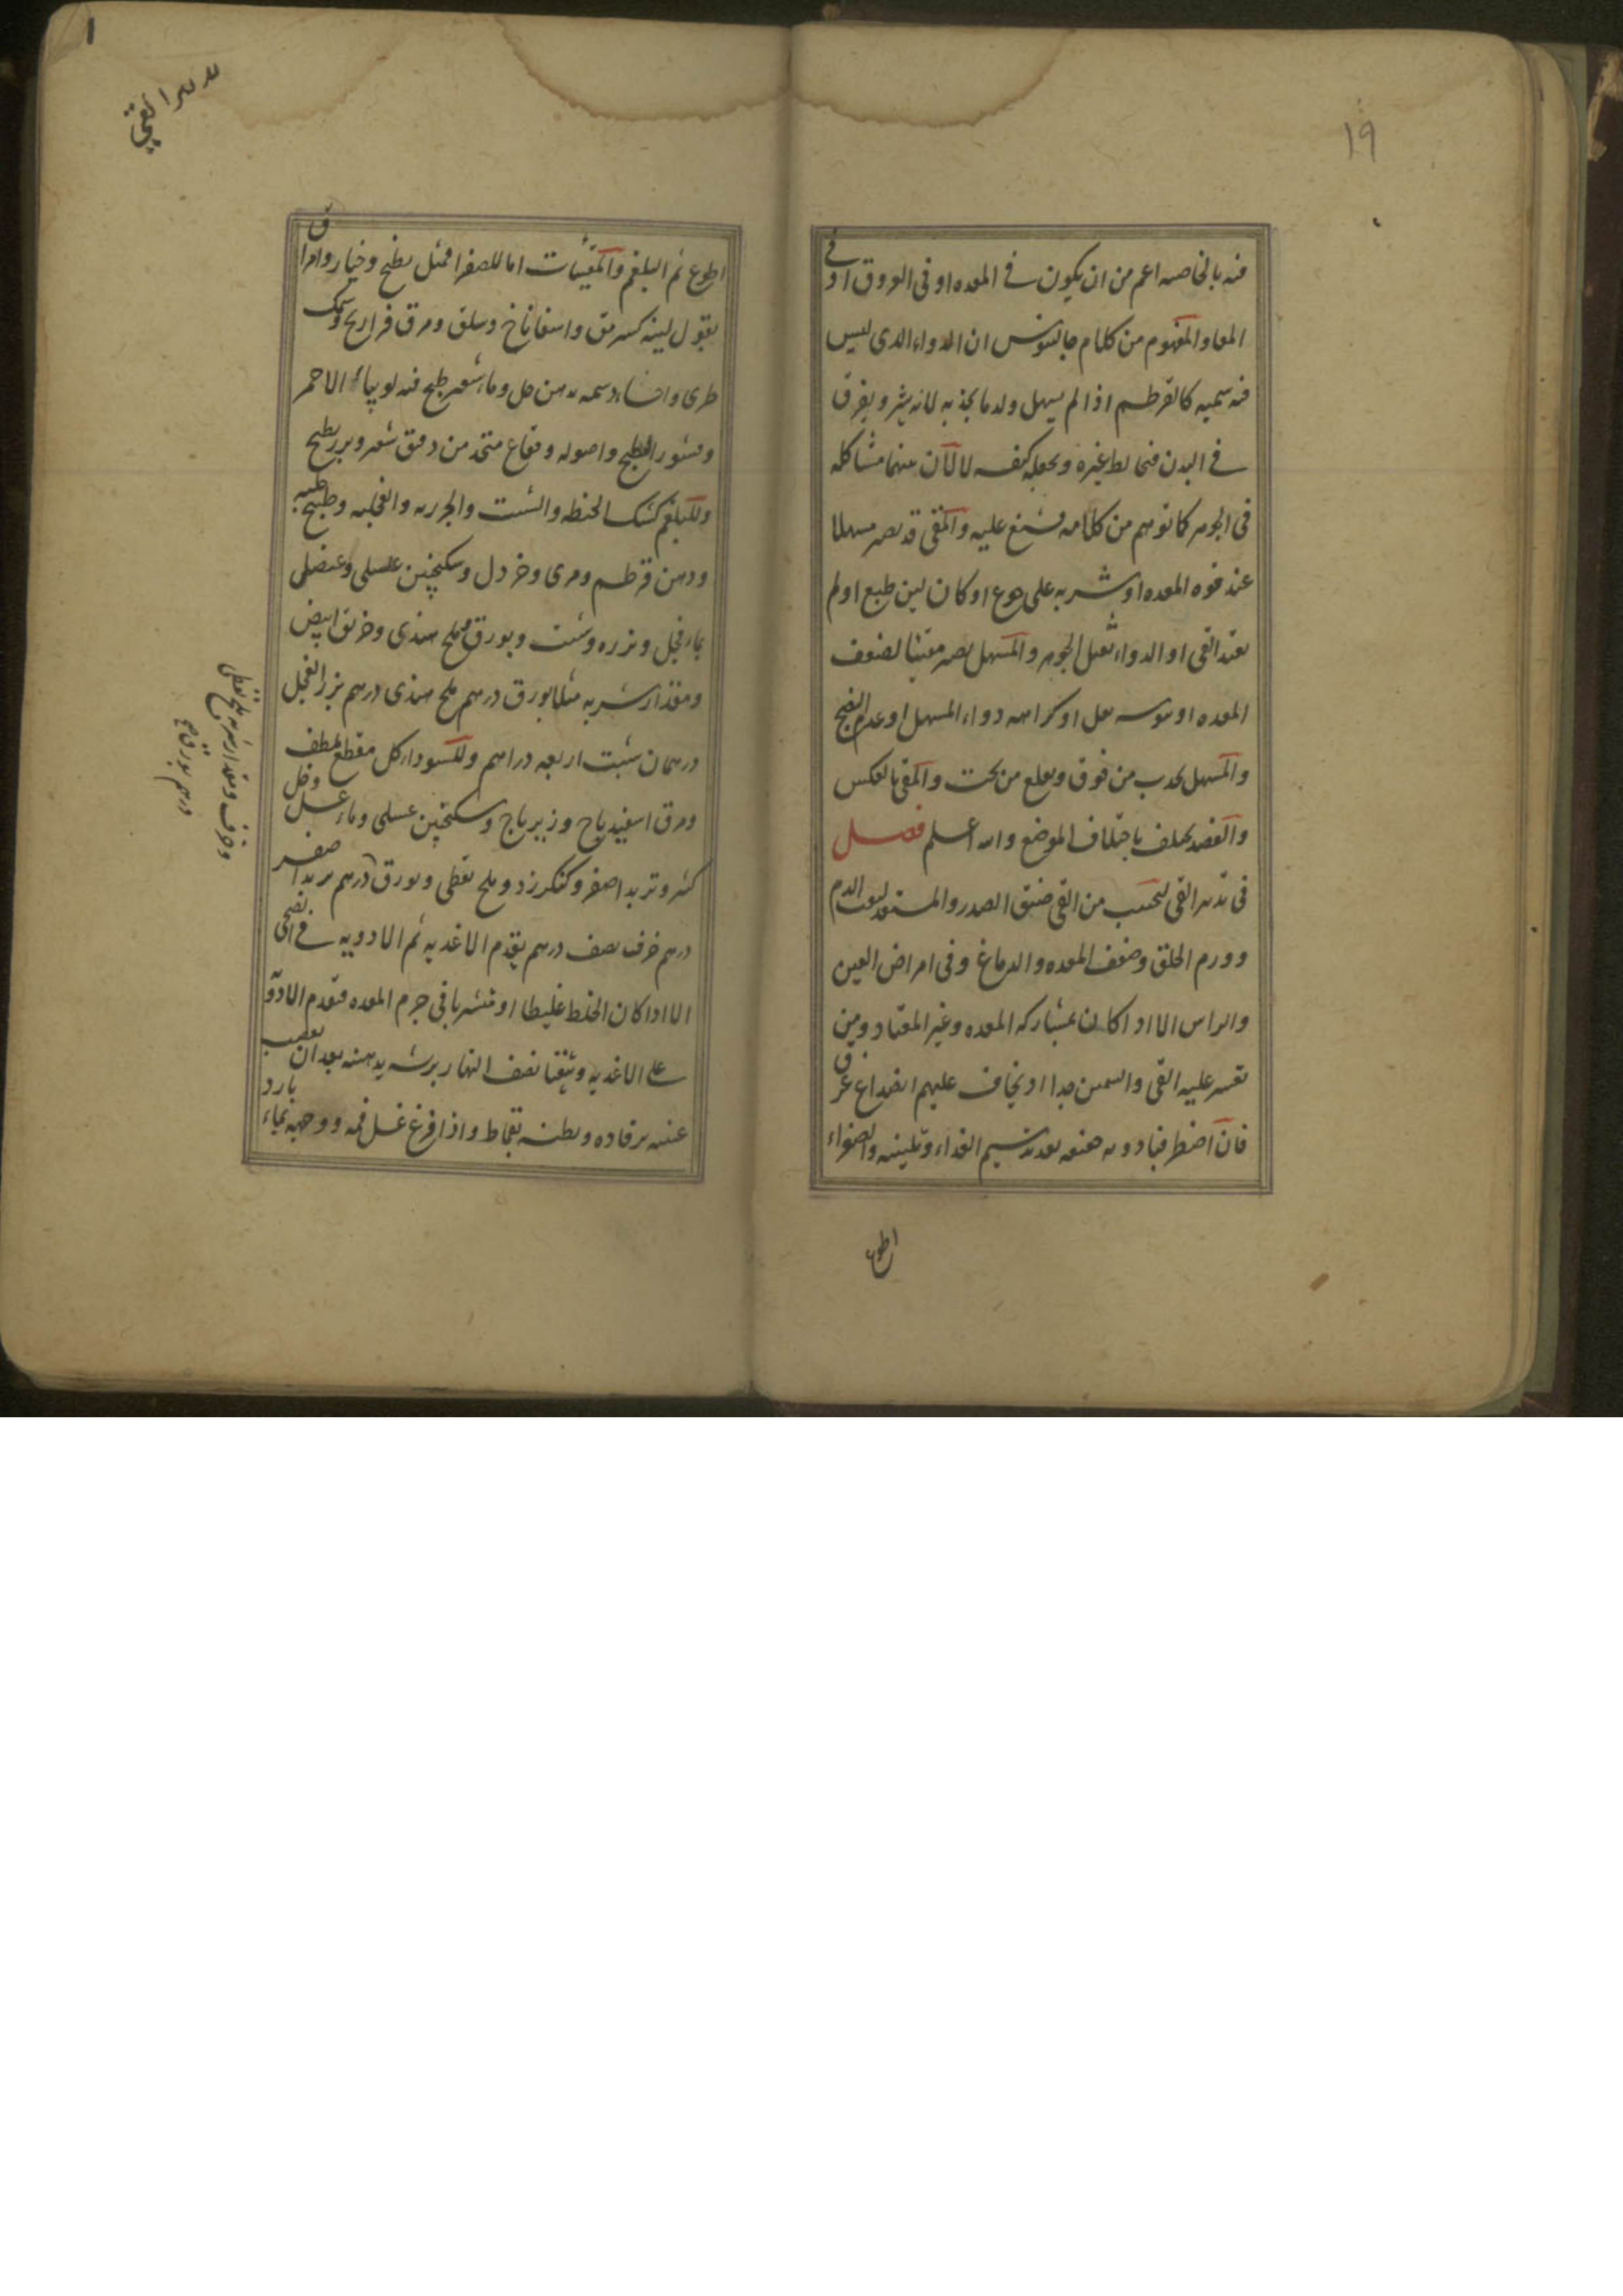 ١٩
فيه بالخاصه اعم من ان يكون في المعده او في العروق او في
المعا والمفهوم من كلام جالينوس ان الدواء الذي ليس
فيه سميه كالقرطم اذا لم يسهل ولد ما يجذبه لانه يثير ويفرق
في البدن فيخالط غيره ويجعله كنفسه لا لان بينهما مشاكله
في الجوهر كما توهم من كلامه فشنع عليه والمقي قد يصير مسهلا
عند قوه المعده او شربه على جوع او كان لين طبع او لم
يعتد القي او الدواء ثقيل الجوهر والمسهل يصير مقيئا لضعف
المعده او يبوسه ثفل او كراهه دواء المسهل او عدم النضج
والمسهل يجذب من فوق ويقلع من تحت والمقي بالعكس
والفصد يختلف باختلاف الموضع والله اعلم فصل
في تدبير القي ليجتنب من القي ضيق الصدر والمستعد لنفث الدم
وورم الحلق وضعف المعده والدماغ وفي امراض العين
والراس الا اذا كان بمشاركه المعده وغير المعتاد ومن
تعسر عليه القي والسمين جدا اذ يخاف عليهم انصداع عرق
فان اضطر فبادويه بعد تدسيم الغذاء وتليينه والصفراء
اطوع
تدبير القي
اطوع ثم البلغم والمقيئات اما للصفرا فمثل بطيخ وخيار وامراق
بقول لينه كسرمق واسفاناخ وسلق ومرق فراريج وسمك
طري واحشاء دسمه بدهن حل وماء شعير طبخ فيه لوبياء الاحمر
وقشور البطيخ واصوله وفقاع متخذ من دقيق شعير وبزر بطيخ
وللبلغم كشك الحنطه والشبت والجزريه والفجليه وطبيخ
ودهن قرطم ومري وخردل وسكنجبين عسلي وعنصلي
بماء فجل وبزره وشبت وبورق وملح هندي وخربق ابيض
ومقدار شربه مثلا بورق درهم ملح هندي درهم بزر الفجل
درهمان شبت اربعه دراهم وللسوداء كل مقطع ملطف
ومرق اسفيدباج وزيرباج وسكنجبين عسلي وماء عسل وخل
كبر وتربد اصفر وكنكرزد وملح نفطي وبورق درهم تربد اصفر
درهم خرف نصف درهم يقدم الاغذيه ثم الادويه في
الا اذا كان الخلط غليظا او متشربا في جرم المعده فتقدم الادويه
على الاغذيه ويتقيا نصف النهار بعد ان يعصب
عينيه برفاده وبطنه بقماط واذا فرغ غسل فمه ووجهه بماء بارد
وخرف ومقدار شربه ملح نفطي
درهم بورق